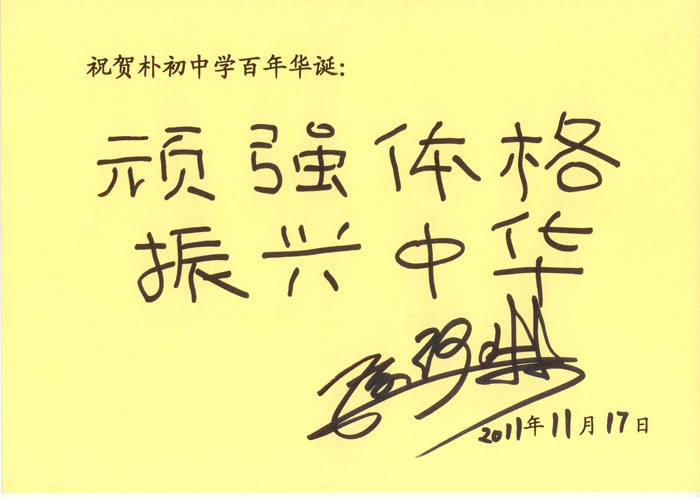 祝贺朴初中学百年华诞:
顽强体格
振兴中华
2011年11月17日